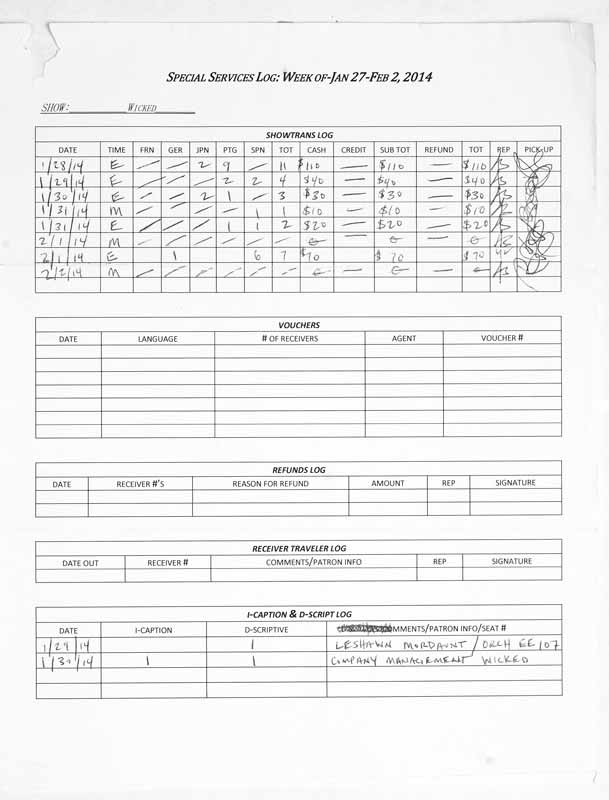 SPECIAL SERVICES LOG: WEEK OF-JAN 27-FEB 2, 2014
SHOW: WICKED
SHOWTRANS LOG
DATE TIME FRN GER JPN PTG SPN TOT CASH CREDIT SUB TOT REFUND TOT REP PICK-UP
1/28/14 E — — 2 9 — 11 $110 — $110 — $110
1/29/14 E — — — 2 2 4 $40 — $40 — $40
1/30/14 E — — 2 1 — 3 $30 — $30 — $30
1/31/14 M — — — — 1 1 $10 — $10 — $10
1/31/14 E — — — 1 1 2 $20 — $20 — $20
2/1/14 M — — — — — — — —
2/1/14 E 1 6 7 $70 $70 $70
2/2/14 M — — — — — — — —
VOUCHERS
DATE LANGUAGE # OF RECEIVERS AGENT VOUCHER #
REFUNDS LOG
DATE RECEIVER #'S REASON FOR REFUND AMOUNT REP SIGNATURE
RECEIVER TRAVELER LOG
DATE OUT RECEIVER # COMMENTS/PATRON INFO REP SIGNATURE
I-CAPTION & D-SCRIPT LOG
DATE I-CAPTION D-SCRIPTIVE OMMENTS/PATRON INFO/SEAT #
1/29/14 1 LESHAWN MORDAUNT / ORCH EE 107
1/30/14 1 1 COMPANY MANAGEMENT WICKED